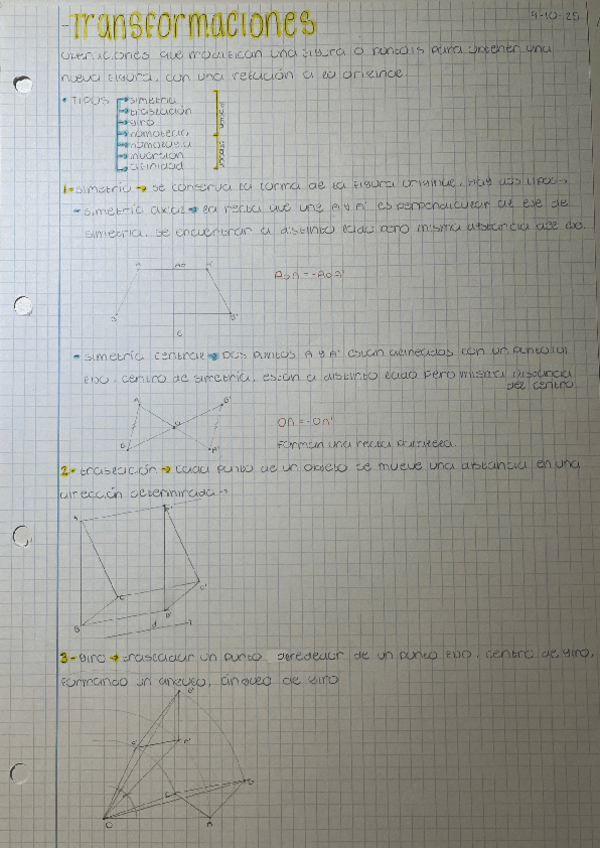 -Transformaciones
9-10-25
operaciones que modifican una figura o puntos para obtener una
nueva figura, con una relación a la original.
• TIPOS
simetría
traslación
giro
homotecia
homología
inversión
afinidad
1- simetría → se conserva la forma de la figura original, hay dos tipos→
- simetría axial → la recta que une A y A' es perpendicular al eje de
simetría, se encuentran a distinto lado pero misma distancia del eje.
C
- simetría central → Dos puntos A y A' están alineados con un punto
fijo, centro de simetría, están a distinto lado pero misma distancia
del centro.
OA = -OA'
Forman una recta paralela.
2- traslación → cada punto de un objeto se mueve una distancia en una
dirección determinada→
A
C
C'
B
B'
d
3- giro → trasladar un punto alrededor de un punto fijo, centro de giro,
formando un ángulo, ángulo de giro
O
A